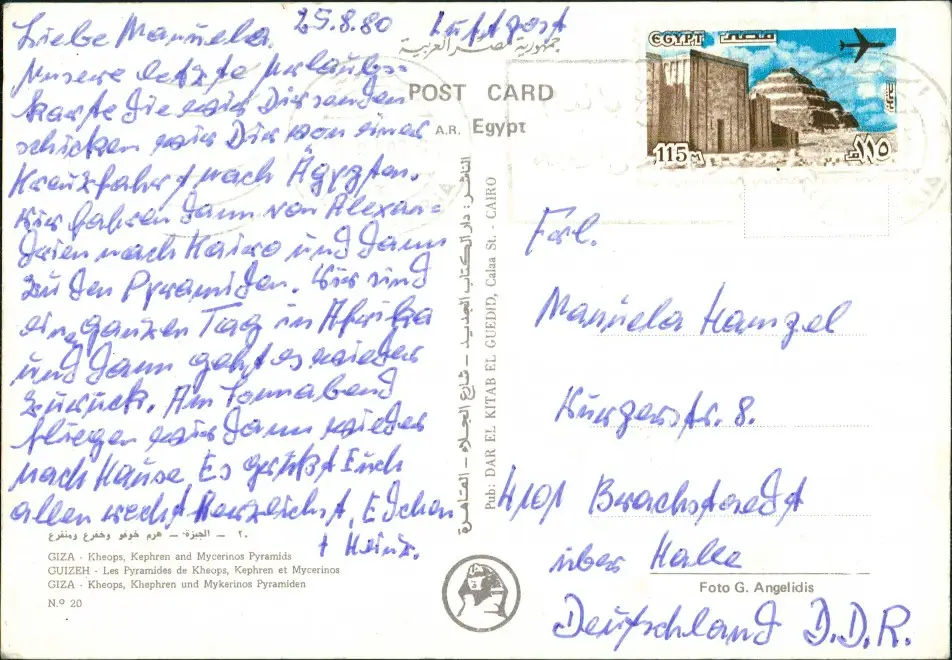 Liebe Manuela. 25.8.80 Luftpost
Unsere letzte Urlaubs-
karte die wir Dir senden
schicken wir Dir von einer
Kreuzfahrt nach Ägypten.
Wir fahren dann von Alexan-
drien nach Kairo und dann
zu den Pyramiden. Wir sind
ein ganzen Tag in Afrika
und dann geht es wieder
zurück. Am Sonnabend
fliegen wir dann wieder
nach Hause. Es grüßt Euch
allen recht Herzlichst,
+ Heinz.
٢٠ – الجيزة – هرم خوفو وخفرع ومنقرع
GIZA - Kheops, Kephren and Mycerinos Pyramids
GUIZEH - Les Pyramides de Kheops, Kephren et Mycerinos
GIZA - Kheops, Khephren und Mykerinos Pyramiden
N.º 20
جمهورية مصر العربية
POST CARD
A.R. Egypt
الناشر : دار الكتاب الجديد – شارع الجلاء – القاهرة
Pub: DAR EL KITAB EL GUEDID, Calaa St. - CAIRO
EGYPT مصر
115 M ١١٥
Frl.
Manuela Hamzel
4101 Brachstedt
über Halle
Foto G. Angelidis
Deutschland D.D.R.